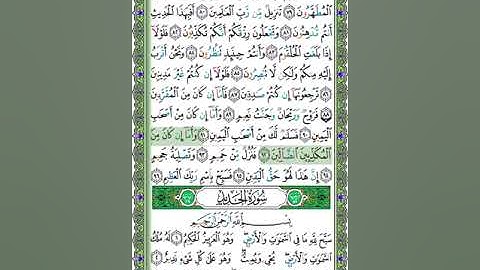 ٱلْمُطَهَّرُونَ ٧٩ تَنزِيلٌ مِّن رَّبِّ ٱلْعَٰلَمِينَ ٨٠ أَفَبِهَٰذَا ٱلْحَدِيثِ
أَنتُم مُّدْهِنُونَ ٨١ وَتَجْعَلُونَ رِزْقَكُمْ أَنَّكُمْ تُكَذِّبُونَ ٨٢ فَلَوْلَآ
إِذَا بَلَغَتِ ٱلْحُلْقُومَ ٨٣ وَأَنتُمْ حِينَئِذٍ تَنظُرُونَ ٨٤ وَنَحْنُ أَقْرَبُ
إِلَيْهِ مِنكُمْ وَلَٰكِن لَّا تُبْصِرُونَ ٨٥ فَلَوْلَآ إِن كُنتُمْ غَيْرَ مَدِينِينَ
٨٦ تَرْجِعُونَهَآ إِن كُنتُمْ صَٰدِقِينَ ٨٧ فَأَمَّآ إِن كَانَ مِنَ ٱلْمُقَرَّبِينَ
٨٨ فَرَوْحٌ وَرَيْحَانٌ وَجَنَّتُ نَعِيمٍ ٨٩ وَأَمَّآ إِن كَانَ مِنْ أَصْحَٰبِ
ٱلْيَمِينِ ٩٠ فَسَلَٰمٌ لَّكَ مِنْ أَصْحَٰبِ ٱلْيَمِينِ ٩١ وَأَمَّآ إِن كَانَ مِنَ
ٱلْمُكَذِّبِينَ ٱلضَّآلِّينَ ٩٢ فَنُزُلٌ مِّنْ حَمِيمٍ ٩٣ وَتَصْلِيَةُ جَحِيمٍ
٩٤ إِنَّ هَٰذَا لَهُوَ حَقُّ ٱلْيَقِينِ ٩٥ فَسَبِّحْ بِٱسْمِ رَبِّكَ ٱلْعَظِيمِ ٩٦
سُورَةُ الْحَدِيدِ
بِسْمِ ٱللَّهِ ٱلرَّحْمَٰنِ ٱلرَّحِيمِ
سَبَّحَ لِلَّهِ مَا فِى ٱلسَّمَٰوَٰتِ وَٱلْأَرْضِ وَهُوَ ٱلْعَزِيزُ ٱلْحَكِيمُ ١ لَهُۥ مُلْكُ
ٱلسَّمَٰوَٰتِ وَٱلْأَرْضِ يُحْىِۦ وَيُمِيتُ وَهُوَ عَلَىٰ كُلِّ شَىْءٍ قَدِيرٌ ٢